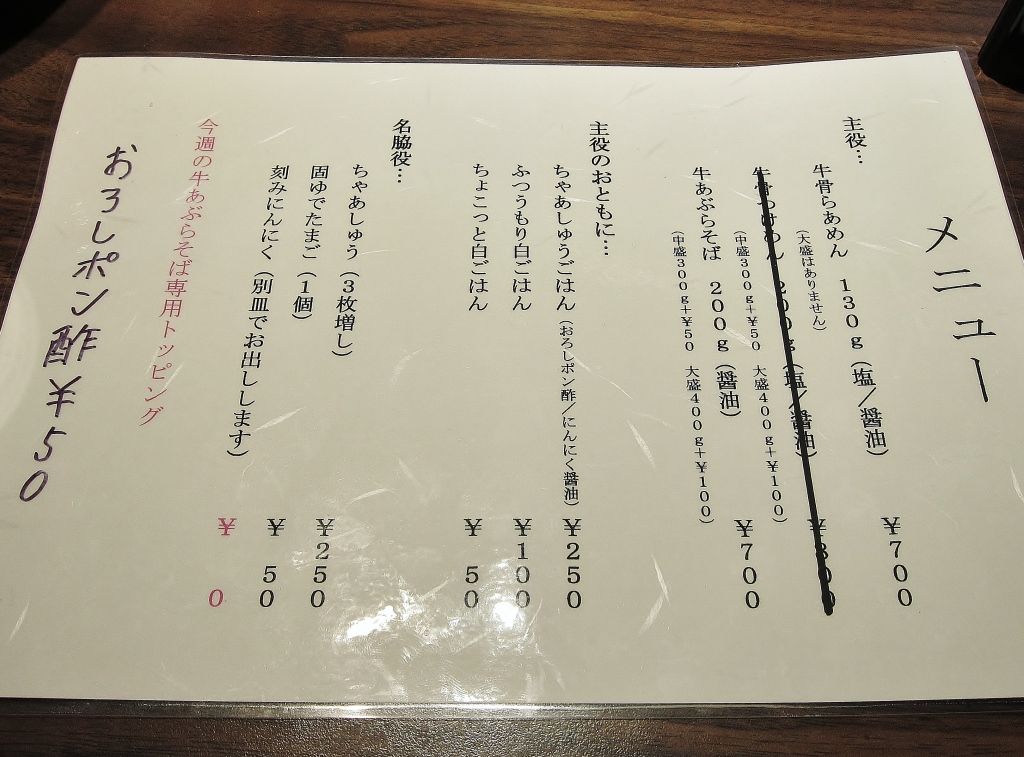 メニュー
主役…
牛骨らあめん　130g（塩／醤油）　¥700
（大盛はありません）
牛骨つけめん　200g（塩／醤油）　¥800
（中盛300g＋¥50　大盛400g＋¥100）
牛あぶらそば　200g（醤油）　¥700
（中盛300g＋¥50　大盛400g＋¥100）
主役のおともに…
ちゃあしゅうごはん（おろしポン酢／にんにく醤油）　¥250
ふつうもり白ごはん　¥100
ちょこっと白ごはん　¥50
名脇役…
ちゃあしゅう（3枚増し）　¥250
固ゆでたまご（1個）　¥50
刻みにんにく（別皿でお出しします）　¥0
今週の牛あぶらそば専用トッピング
おろしポン酢¥50